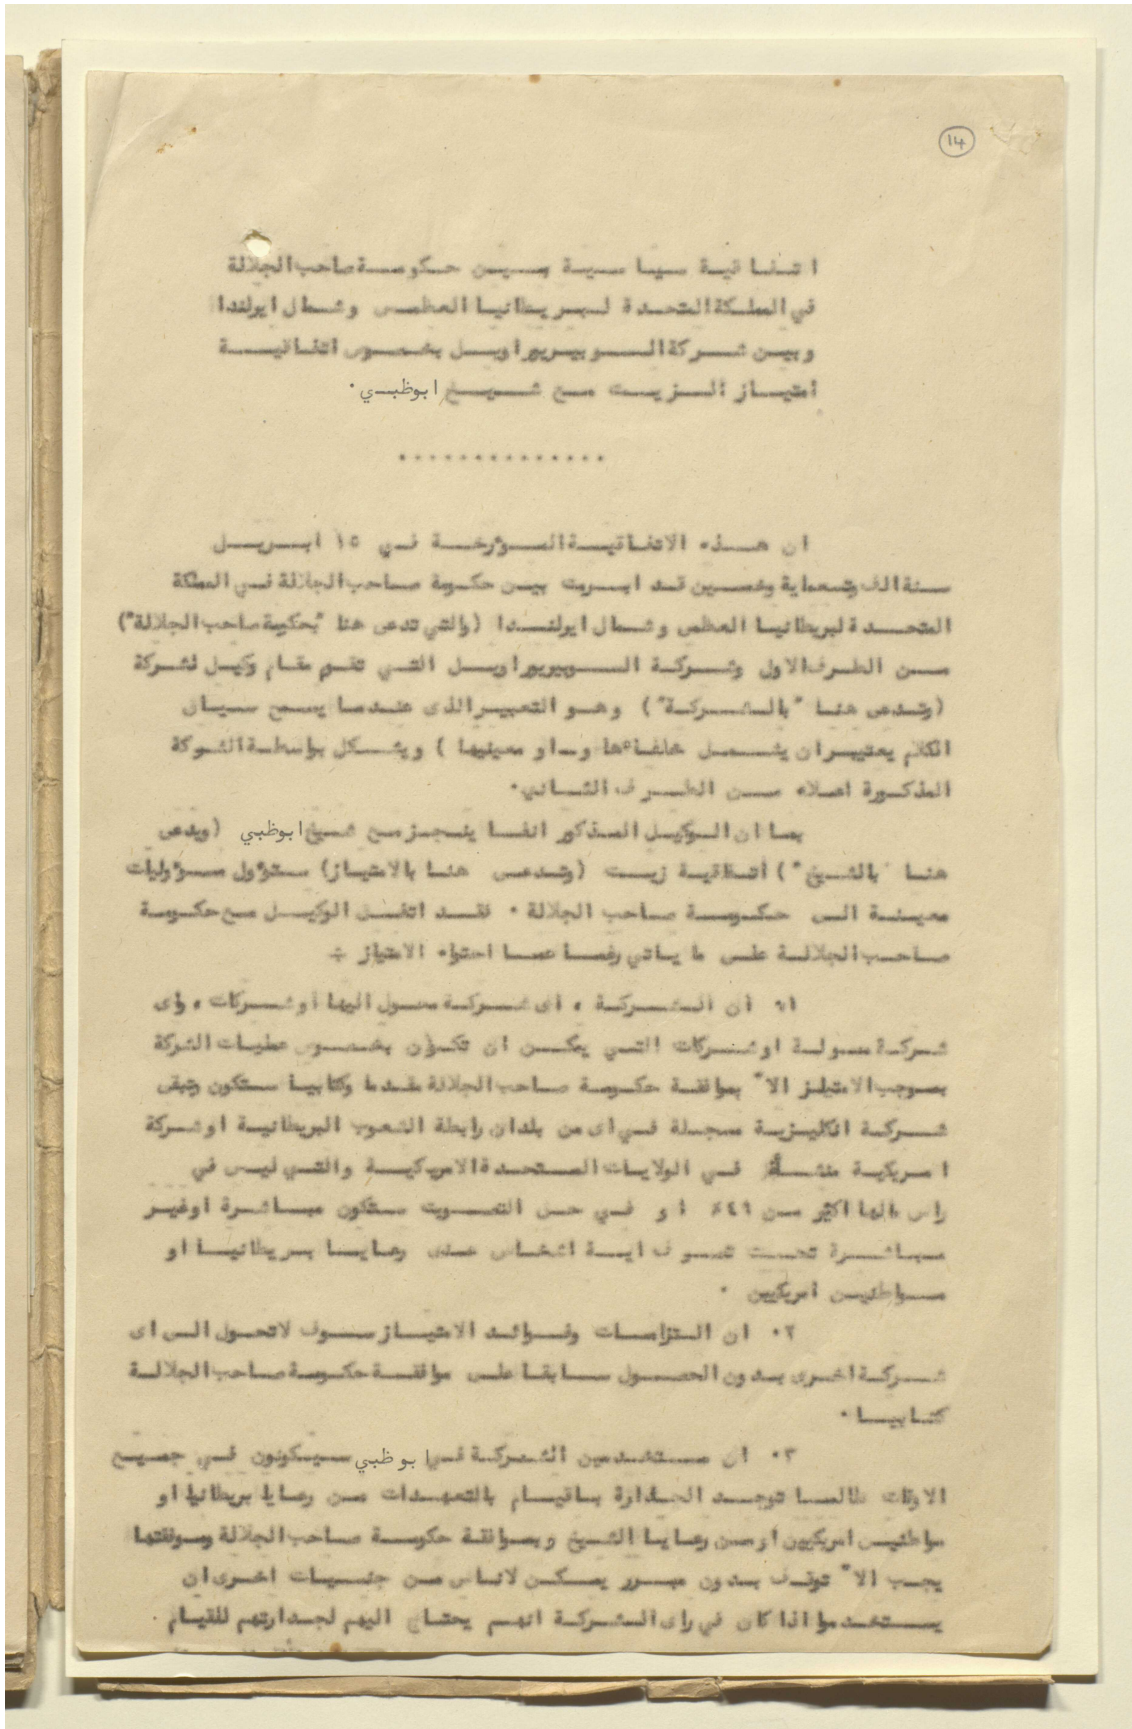 ١٤
اتفاقية سياسية بين حكومة صاحب الجلالة
في المملكة المتحدة لبريطانيا العظمى وشمال ايرلندا
وبين شركة السوبيريور اويل بخصوص اتفاقية
امتياز الزيت مع شيخ ابوظبي ٠
ان هذه الاتفاقية المؤرخة في ١٥ ابريل
سنة الف وتسعماية وخمسين قد ابرمت بين حكومة صاحب الجلالة في المملكة
المتحدة لبريطانيا العظمى وشمال ايرلندا (والتي تدعى هنا "بحكومة صاحب الجلالة")
من الطرف الاول وشركة السوبيريور اويل التي تقوم مقام وكيل لشركة
(وتدعى هنا "بالشركة") وهو التعبير الذى عندما يسمح سياق
الكلام يعتبر ان يشمل خلفاءها و-او معينيها ) ويشكل بواسطة الشركة
المذكورة اعلاه من الطرف الثاني٠
بما ان الوكيل المذكور انفا ينجز مع شيخ ابوظبي (ويدعى
هنا "بالشيخ") اتفاقية زيت (وتدعى هنا بالامتياز) ستؤول مسؤوليات
معينة الى حكومة صاحب الجلالة ٠ فقد اتفق الوكيل مع حكومة
صاحب الجلالة على ما ياتي رغما عما احتواه الامتياز ÷
١٠ ان الشركة ، اى شركة محول اليها او شركات ، واى
شركة ممولة او شركات التي يمكن ان تكون بخصوص عمليات الشركة
بموجب الامتياز الا" بموافقة حكومة صاحب الجلالة مقدما وكتابيا ستكون وتبقى
شركة انكليزية مسجلة في اى من بلدان رابطة الشعوب البريطانية او شركة
امريكية منشأة في الولايات المتحدة الامريكية والتي ليس في
راس مالها اكثر من ٤٩٪ او في حق التصويت ستكون مباشرة او غير
مباشرة تحت تصرف اية اشخاص عدى رعايا بريطانيا او
مواطنين امريكيين ٠
٢٠ ان التزامات وفوائد الامتياز سوف لا تحول الى اى
شركة اخرى بدون الحصول سابقا على موافقة حكومة صاحب الجلالة
كتابيا٠
٣٠ ان مستخدمين الشركة في ابوظبي سيكونون في جميع
الاوقات طالما توجد الجدارة باقيام بالتعهدات من رعايا بريطانيا او
مواطنين امريكيين او من رعايا الشيخ وبموافقة حكومة صاحب الجلالة وموفقتها
يجب الا" توقف بدون مبرر يمكن لاناس من جنسيات اخرى ان
يستخدموا اذا كان في راى الشركة انهم يحتاج اليهم لجدارتهم للقيام